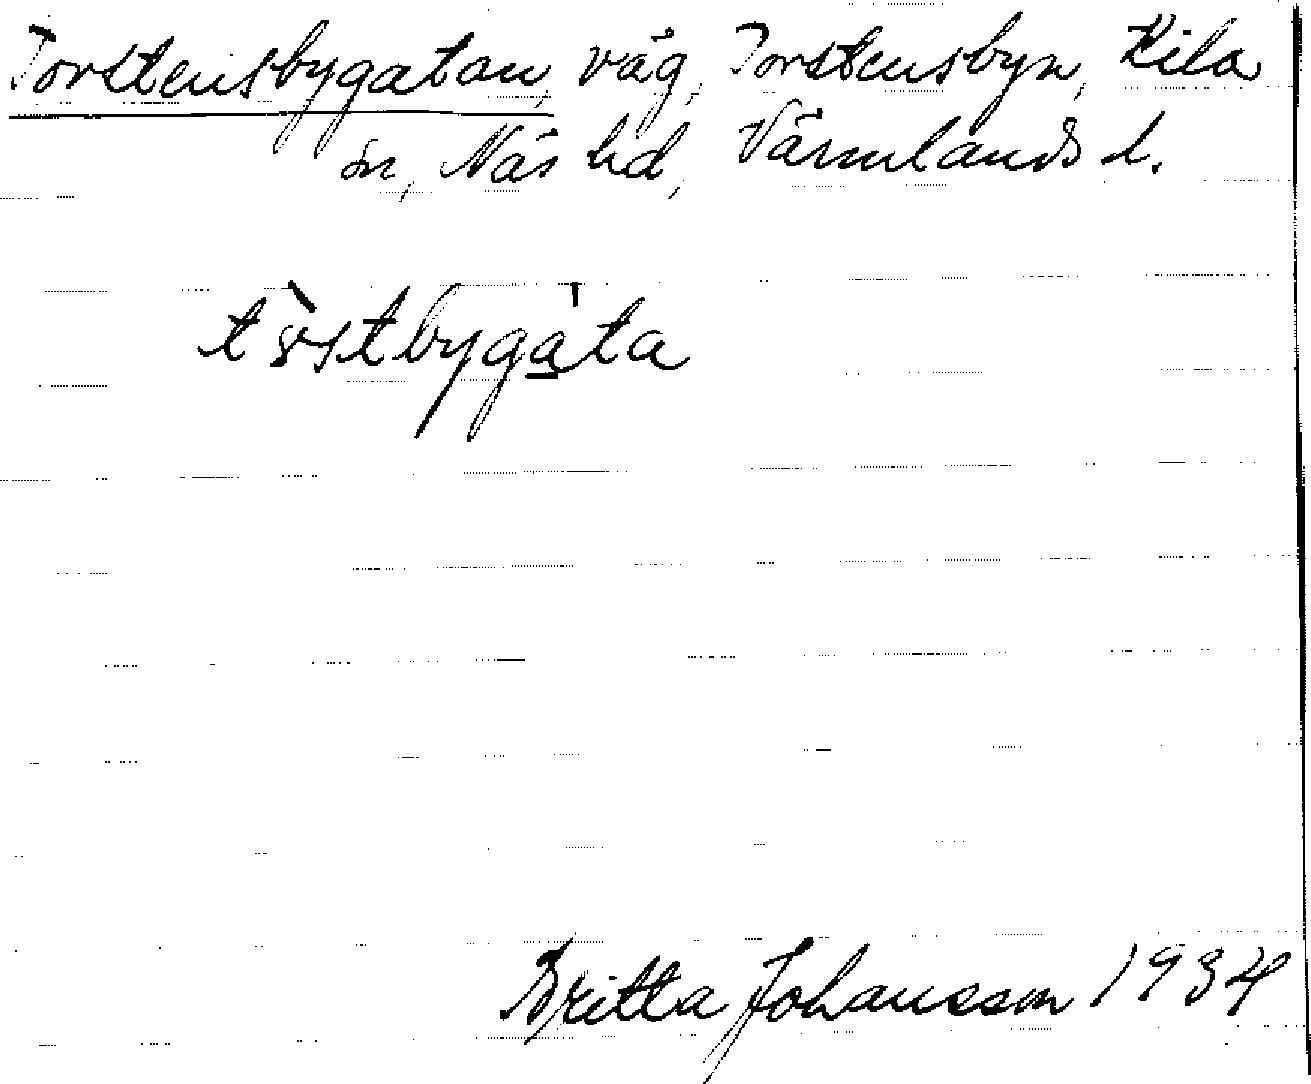 Torstensbygatan, väg, Torstensbyn, Kila
sn, Näs hd, Värmlands l.
Britta Johansson 1934